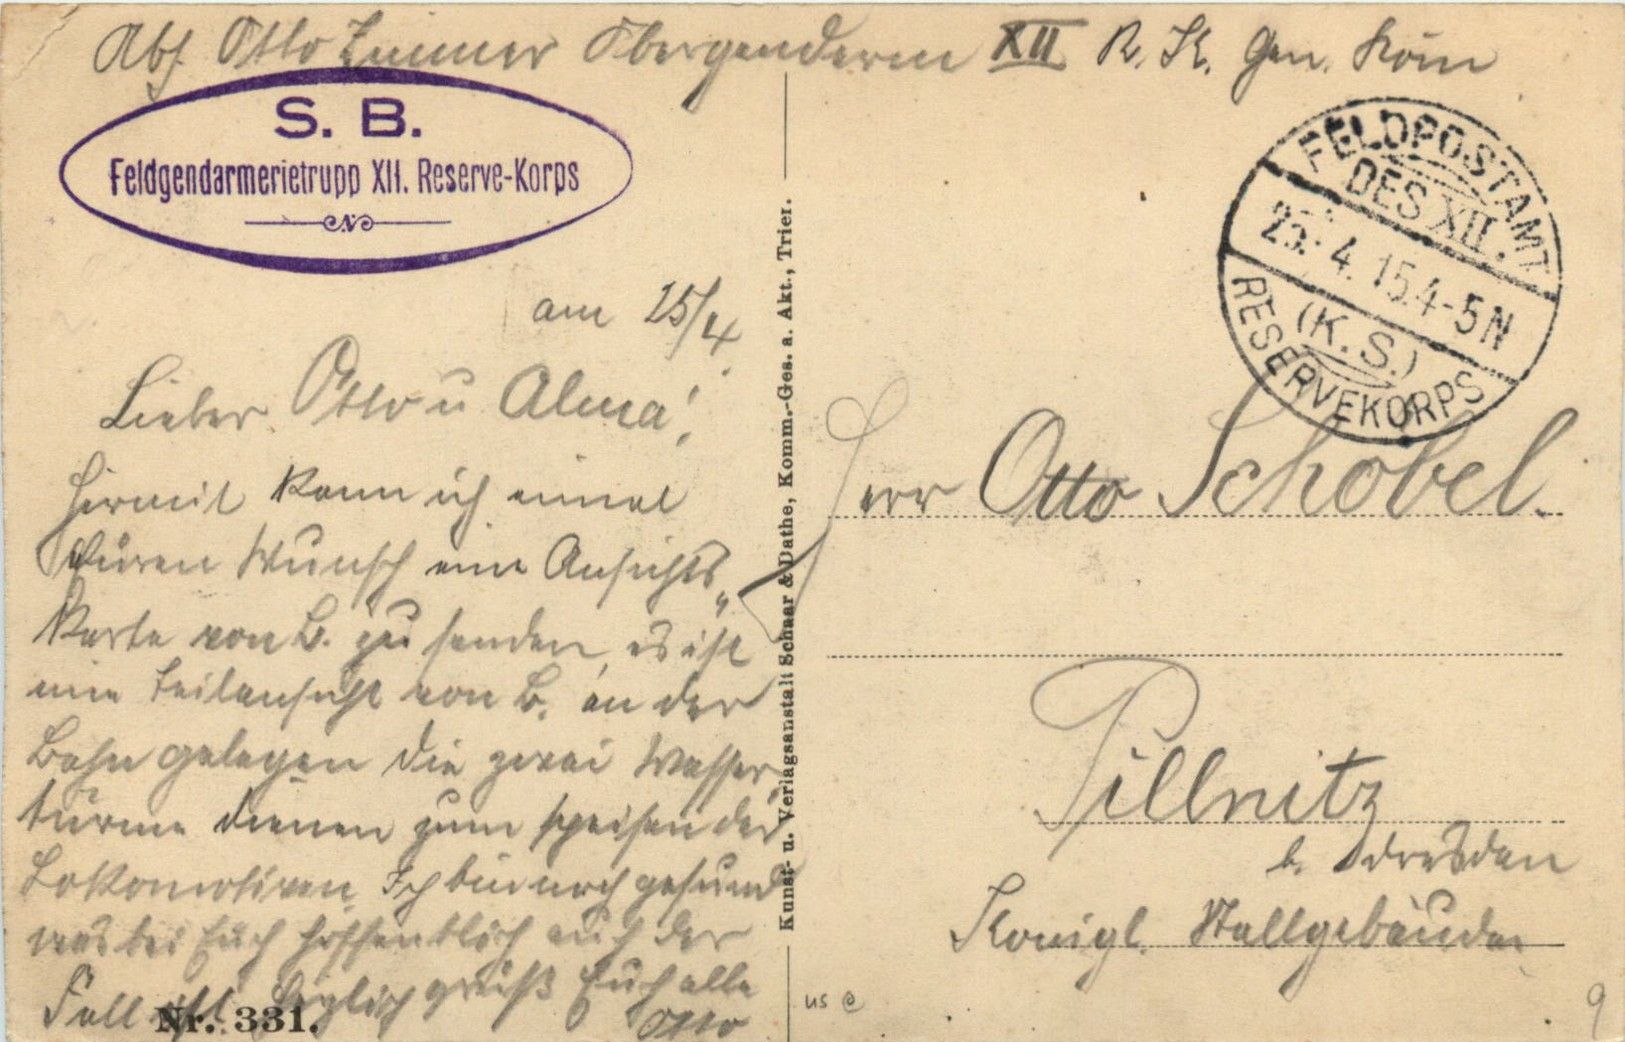 Abs. Otto Zimmer Obergendarm XII R. K. Gen. Kom
S. B.
Feldgendarmerietrupp XII. Reserve-Korps
FELDPOSTAMT
DES XII.
25. 4. 15. 4-5 N
(K. S.)
RESERVEKORPS
am 25/4.
Lieber Otto u Alma!
Hiermit kann ich einmal
Euren Wunsch eine Ansichts„
karte von B. zu senden, es ist
eine Teilansicht von B. an der
Bahn gelegen die zwei Wasser,
türme dienen zum speisen der
Lokomotiven. Ich bin noch gesund
was bei Euch hoffentlich auch der
Fall ist. Herzlich grüßt Euch alle
Otto
Nr. 331.
Kunst- u. Verlagsanstalt Schaar & Dathe, Komm.-Ges. a. Akt., Trier.
Herr Otto Schobel.
Pillnitz
b. Dresden
Königl. Stallgebäude
us e
9